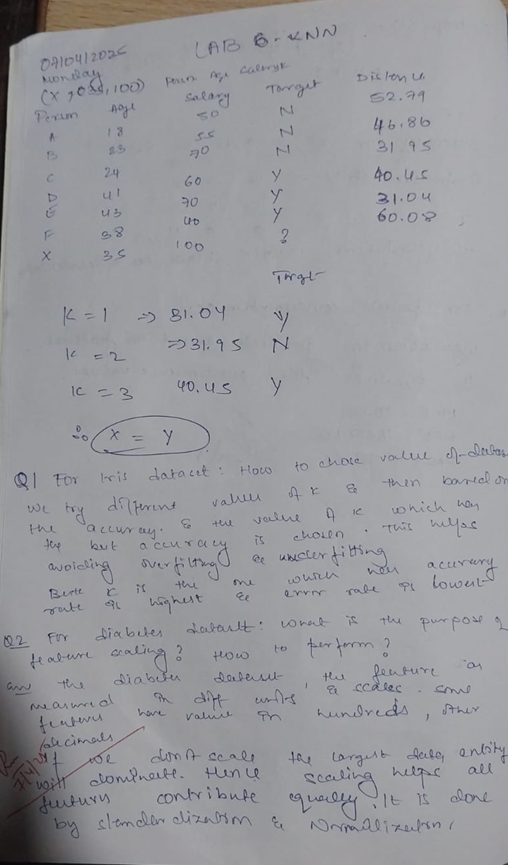 LAB 6 - KNN
07/04/2025
Monday
(X, 035, 100)
Person Age Salary Target Distance
A 18 50 N 52.79
B 23 55 N 46.86
C 24 70 N 31.95
D 41 60 Y 40.45
E 43 70 Y 31.04
F 38 40 Y 60.08
X 35 100 ?
Target
K = 1 => 31.04 Y
K = 2 => 31.95 N
K = 3 40.45 Y
∴ X = Y
Q1 For Iris dataset: How to chose value of
we try different values of K & then based on
the accuracy. & the value of K which has
the best accuracy is chosen. This helps
avoiding overfitting & underfitting
Best K is the one which has accuracy
rate is highest & error rate is lowest
Q2 For diabetes dataset: what is the purpose of
feature scaling? How to perform?
ans The diabetes dataset, the feature as
measured in diff units & scales. some
features have value in hundreds, other
decimals.
If we don't scale the largest data entity
will dominate. Hence scaling helps all
features contribute equally. It is done
by standardization & Normalization.